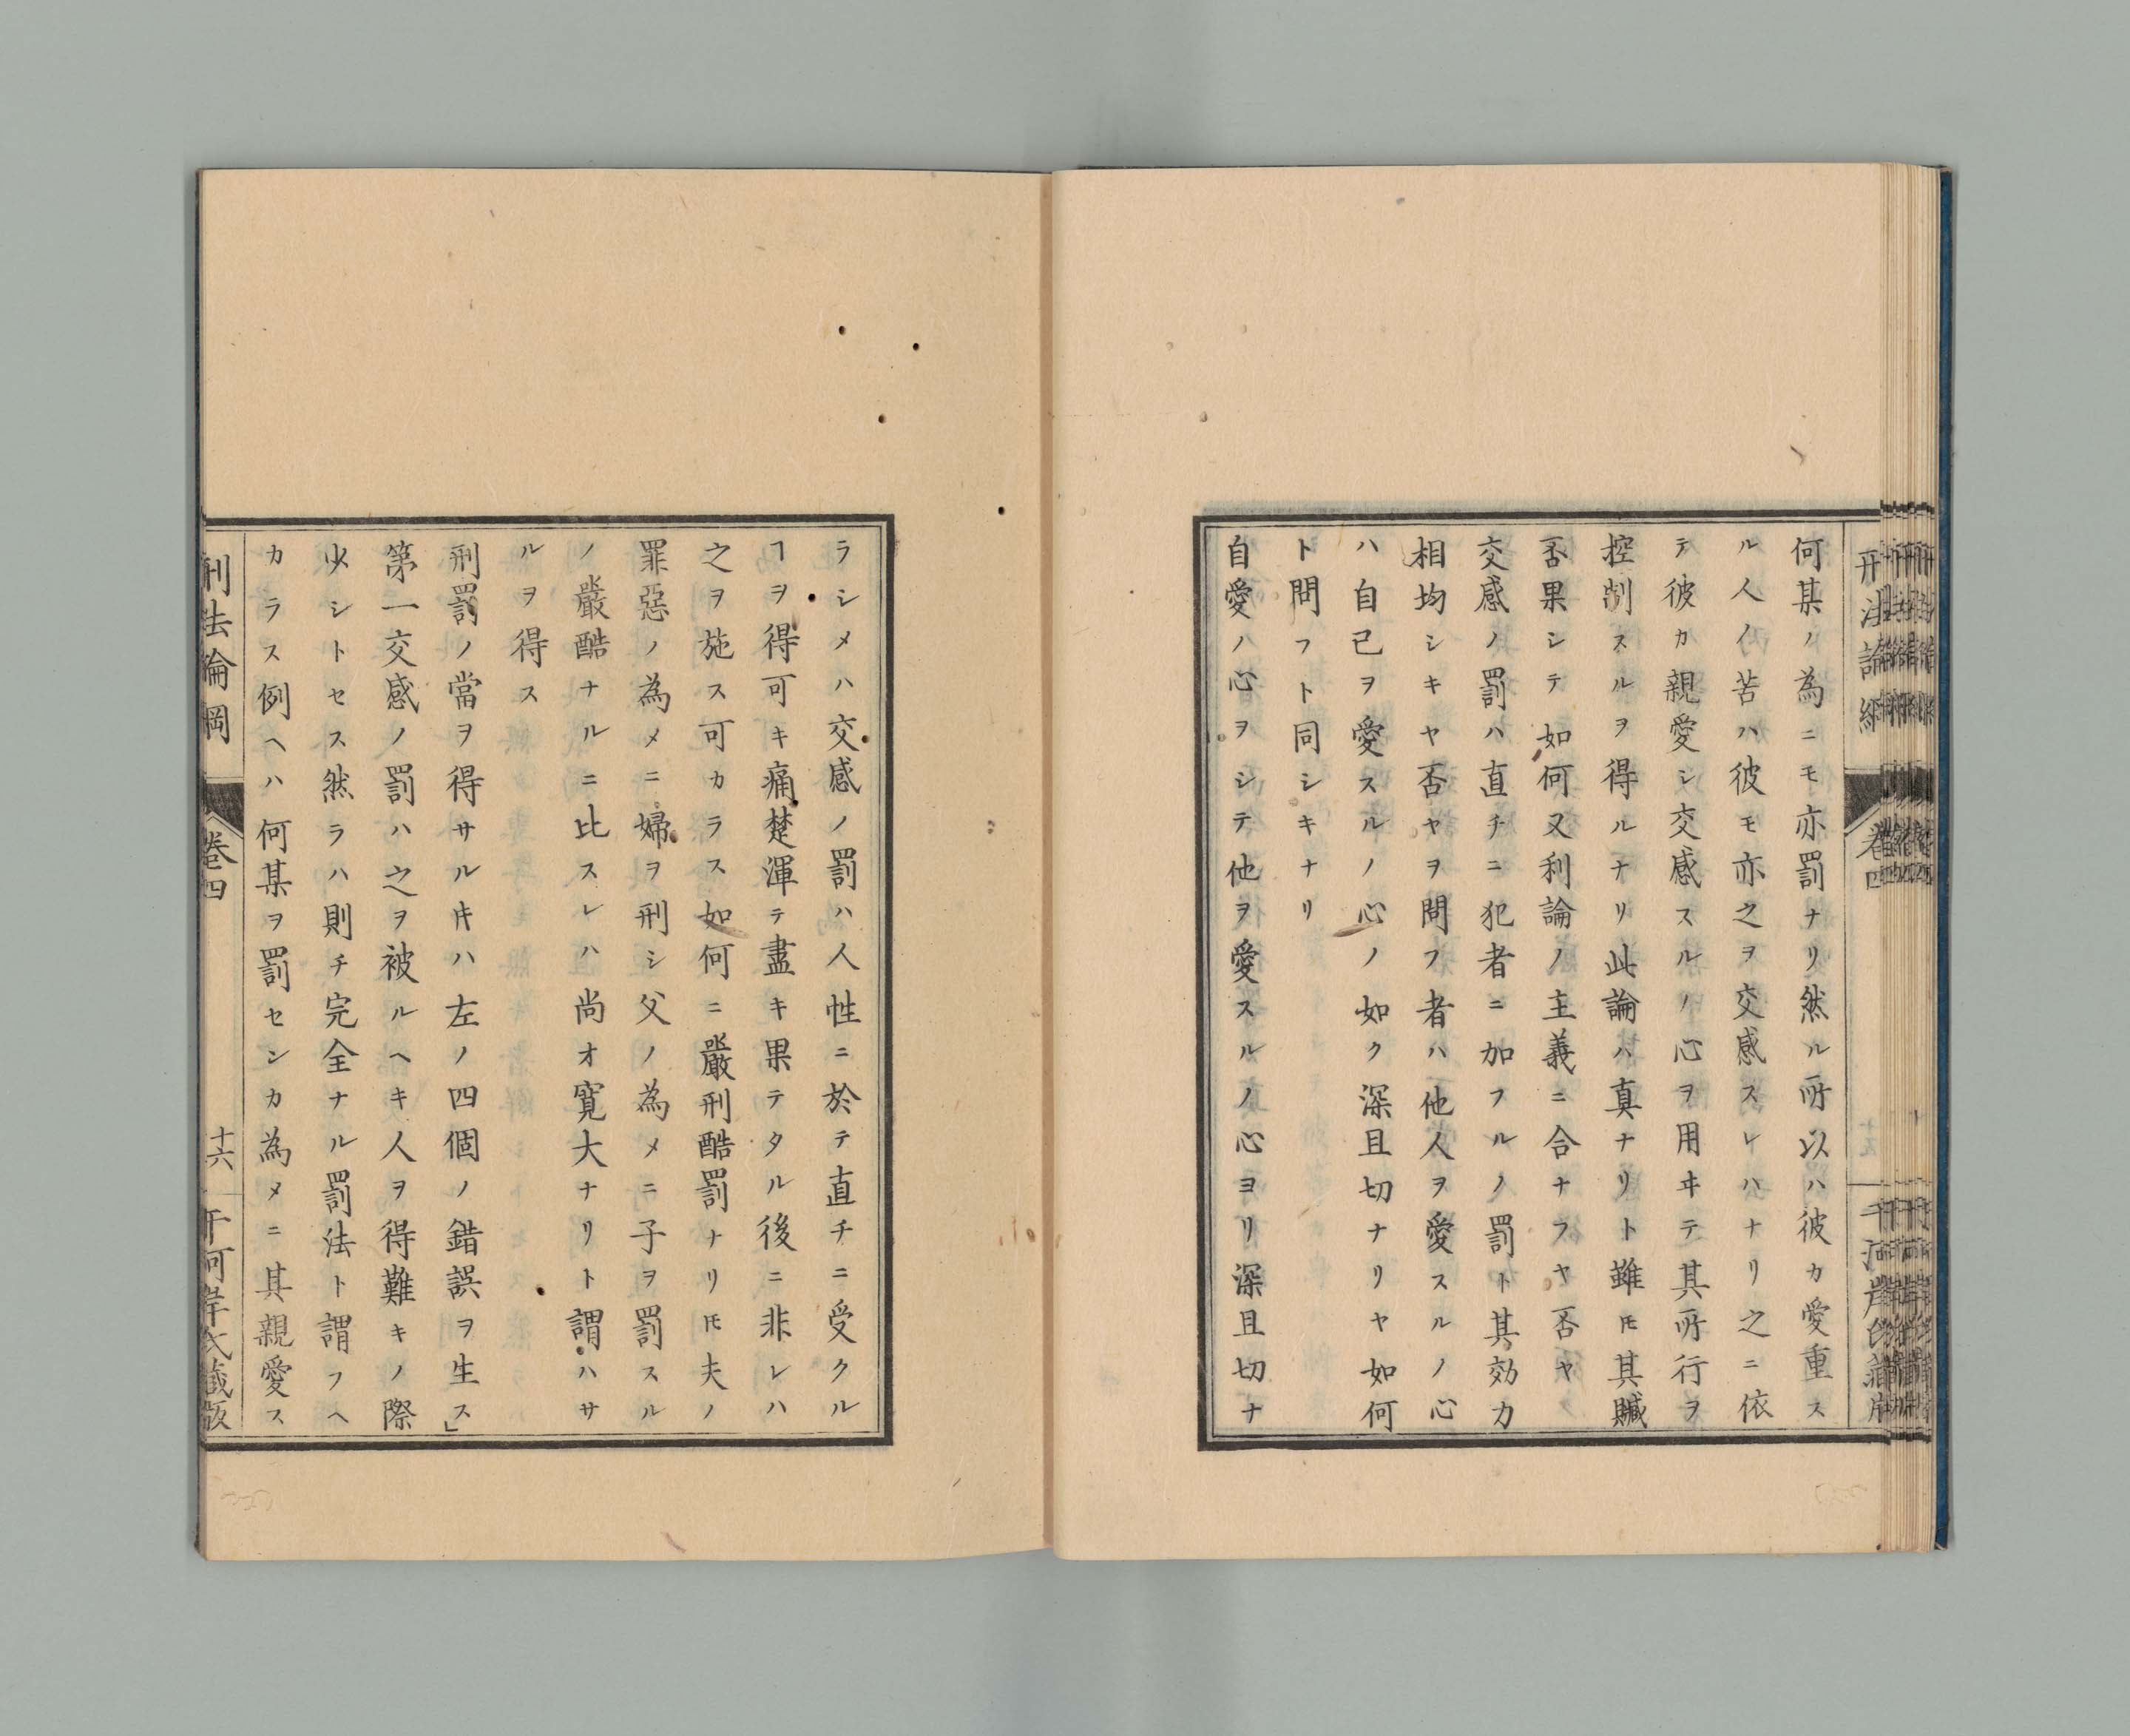 何某ノ為ニモ亦罰ナリ然ル所以ハ彼カ愛重ス
ル人ノ苦ハ彼モ亦之ヲ交感スレハナリ之ニ依
テ彼カ親愛シ交感スルノ心ヲ用ヰテ其所行ヲ
控制スルヲ得ルナリ此論ハ真ナリト雖𪜈其贓
否果シテ如何又利論ノ主義ニ合ナフヤ否ヤ
交感ノ罰ハ直チニ犯者ニ加フルノ罰ト其効力
相均シキヤ否ヤヲ問フ者ハ他人ヲ愛スルノ心
ハ自己ヲ愛スルノ心ノ如ク深且切ナリヤ如何
ト問フト同シキナリ
自愛ノ心ヲシテ他ヲ愛スルノ心ヨリ深且切ナ
ラシメハ交感ノ罰ハ人性ニ於テ直チニ受クル
ヿヲ得可キ痛楚渾テ盡キ果テタル後ニ非レハ
之ヲ施ス可カラス如何ニ嚴刑酷罰ナリ𪜈夫ノ
罪惡ノ為メニ婦ヲ刑シ父ノ為メニ子ヲ罰スル
ノ嚴酷ナルニ比スレハ尚オ寛大ナリト謂ハサ
ルヲ得ス
刑罰ノ當ヲ得サルキハ左ノ四個ノ錯誤ヲ生ス」
第一交感ノ罰ハ之ヲ被ルヘキ人ヲ得難キノ際
少シトセス然ラハ則チ完全ナル罰法ト謂フヘ
カラス例ヘハ何某ヲ罰センカ為メニ其親愛ス
刑法論綱
卷四
十六
千河岸氏藏版